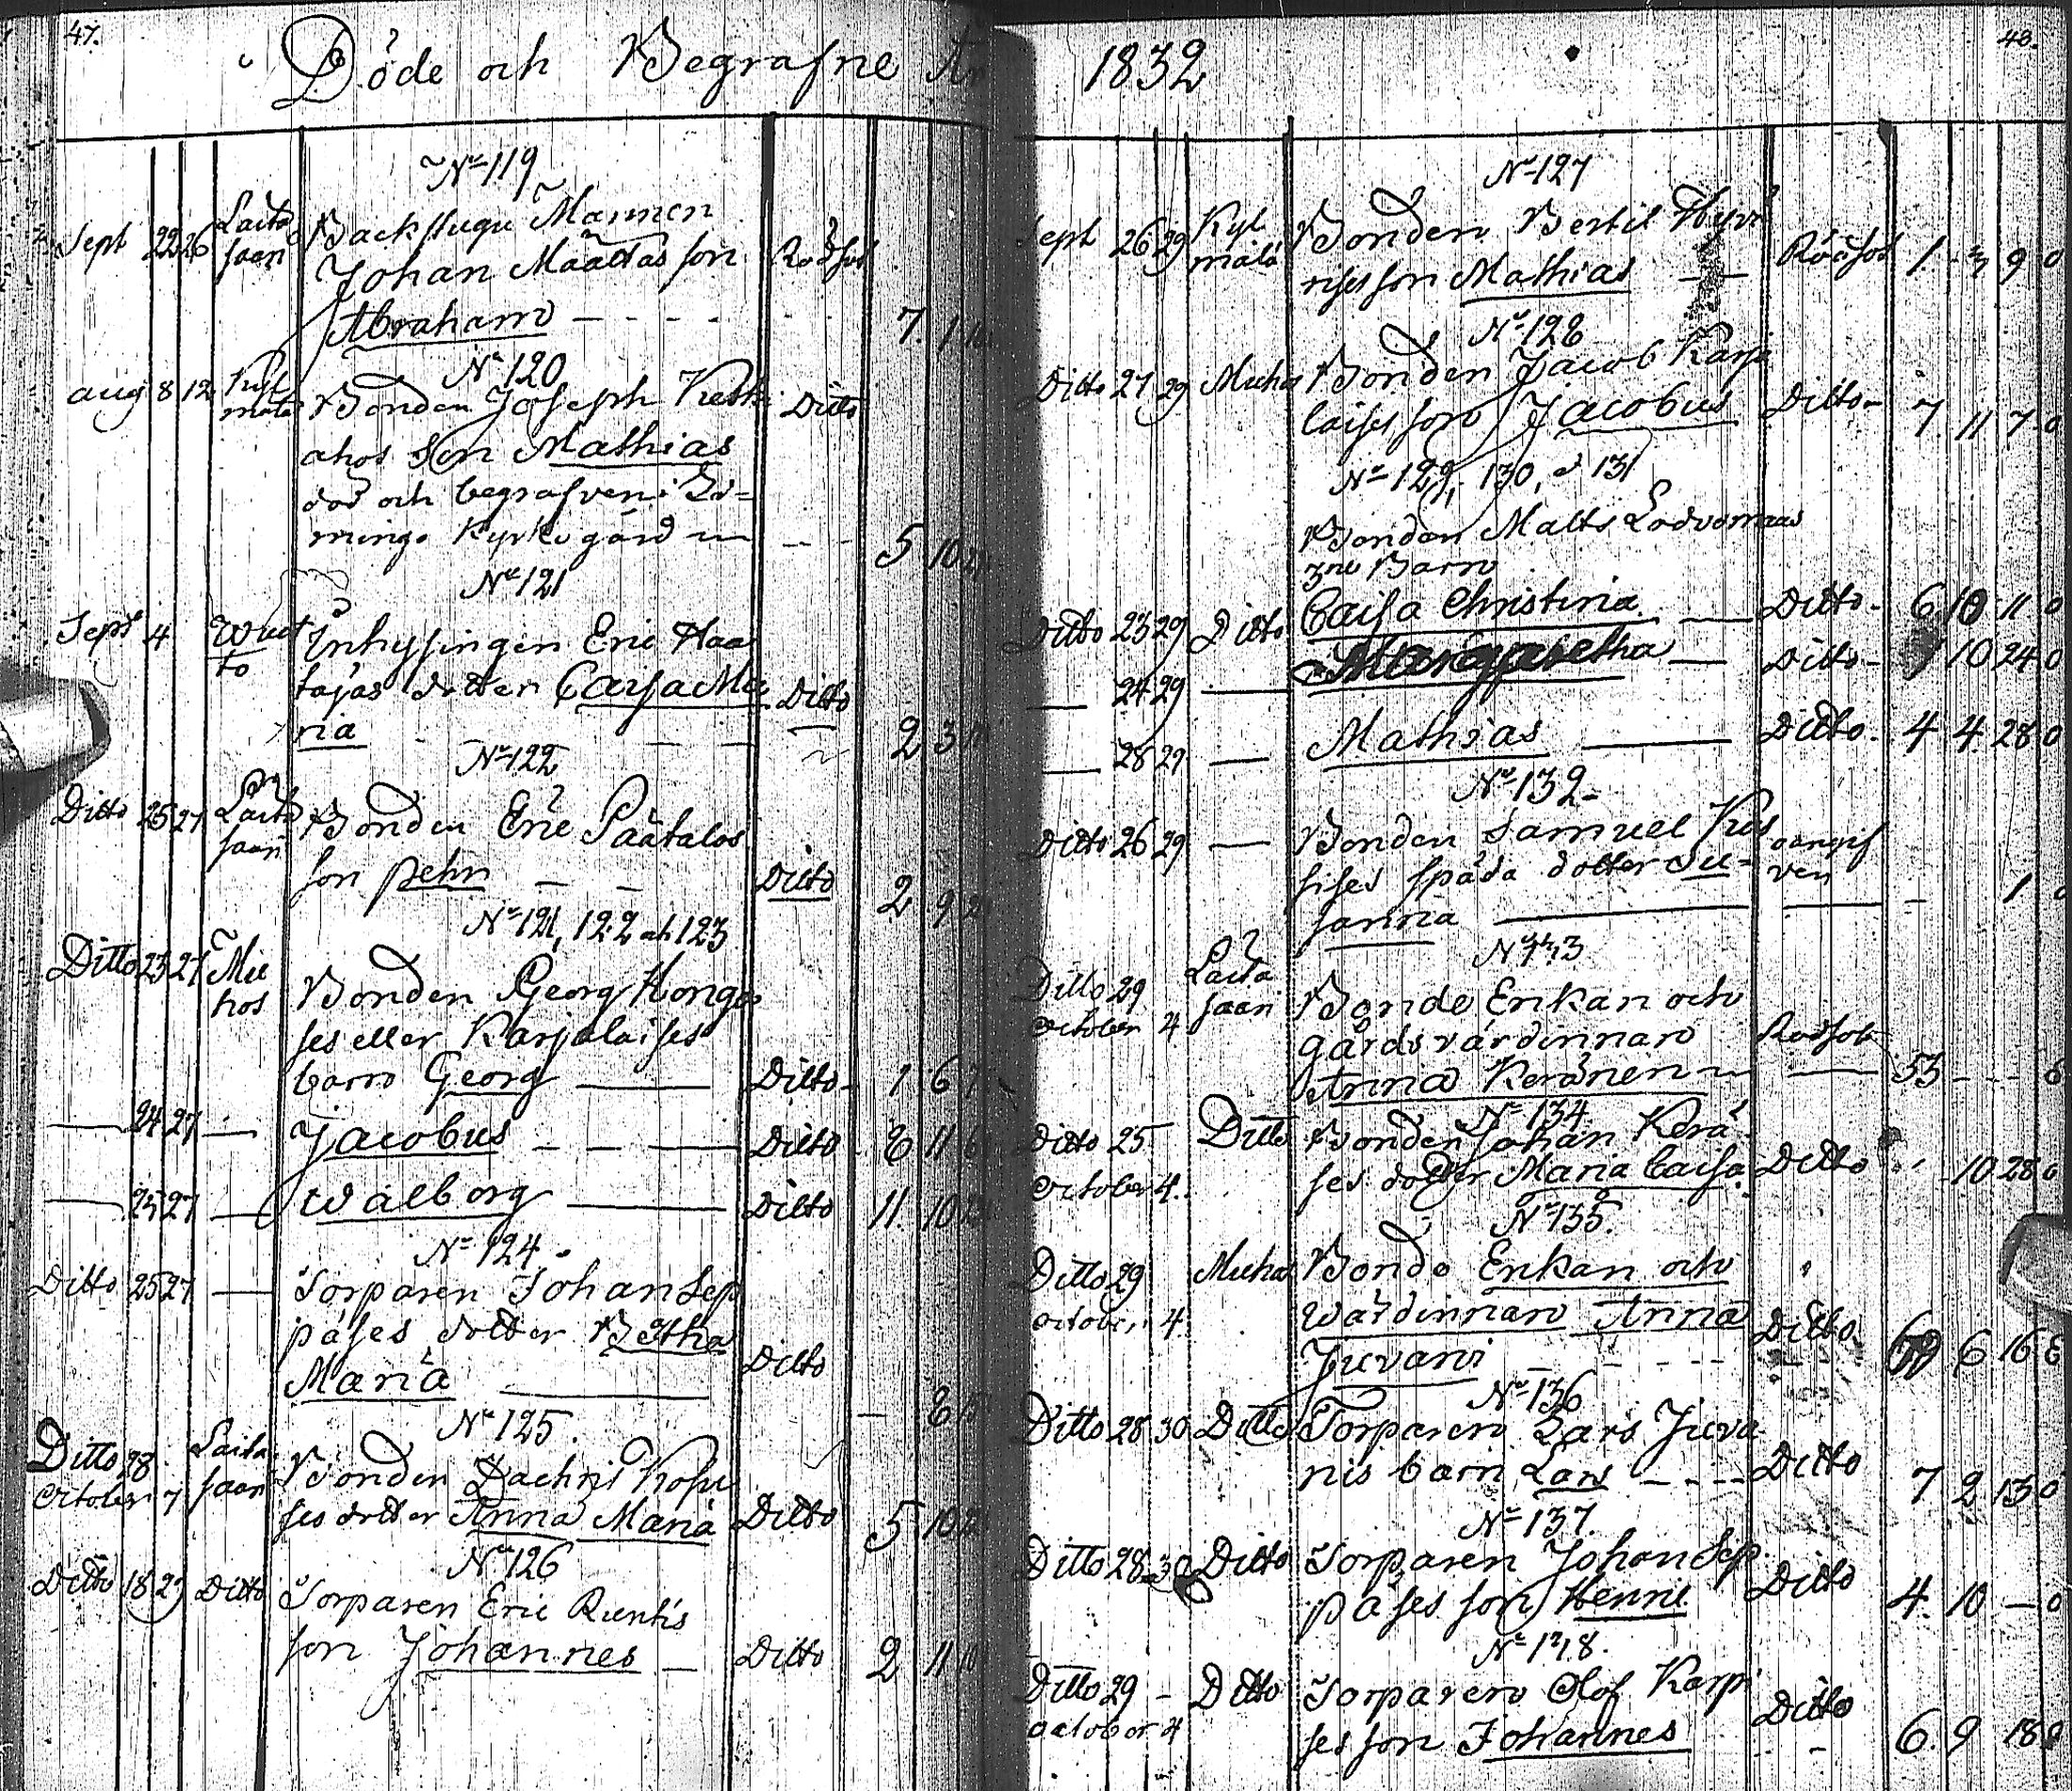 47.
Döde och Begrafne År
Nº 119
Sept 22 26 Laita saari Backstugu Mannen
Johan Määttäs son Rödsot
Abraham - - - - 7. 1
Nº 120
aug 8 12 Kyl mälä Bonden Joseph Keski Ditto
ahos son Mathias
död och begrafven i
minge Kyrko gård - - 5 10
Nº 121
Sept 4 Wuot to Inhysingen Eric Haa
tajas dotter Caisa Ma Ditto
ria 2 3
Nº 122
Ditto 25 27 Laita saari Bonden Eric Päätalos
son Pehr - - Ditto 2 9
Nº 121, 122 och 123
Ditto 23 27 Mu hos Bonden Georg Konga
ses eller Karjalaises
barn Georg — Ditto 1 6 7
— 24 27 — Jacobus - - — Ditto 8 11 6
— 25 27 — Walborg — Ditto 11. 10
Nº 124.
Ditto 25 27 — Torparen Johan Lep
päses dotter Betha
Maria — Ditto — 8
Nº 125.
Ditto 28 October 7 Laita saari Bonden Zachris
ses dotter Anna Maria Ditto 5 10
Nº 126
Ditto 18 29 Ditto Torparen Eric
son Johannes — Ditto 2 11 10
1832
48.
Nº 127
Sept 26 29 Kyl mälä Bonden Bertil Hyvö
rises son Mathias — Rödsot 1. 3 9 0
Nº 128
Ditto 27 29 Muhos Bonden Jacob Karja
laises son Jacobus Ditto - 7 11 7 0
Nº 129, 130, o 131
Bonden Matts
3ne Barn
Ditto 23 29 Ditto Caisa Christina — Ditto - 6 10 11 0
— 24 29 — Margaretha — Ditto - 10 24 0
— 28 29 — Mathias — Ditto. 4 4 28 0
Nº 132.
Ditto 26 29 — Bonden Samuel oangif
sises späda dotter Su= ven
sanna — - 1 0
Nº 133
Ditto 29 October 4 Laita saari Bonde Enkan och
gårdsvärdinnan Rödsot
Anna Keränen — 53 - - -
Nº 134
Ditto 25 October 4. Ditto Bonden Johan Kerä
ses dotter Maria Caisa Ditto 10 28 0
Nº 135.
Ditto 29 October 4 Muhos Bonde Enkan och
wärdinnan Anna Ditto
Juvani - - - 6 16
Nº 136
Ditto 28 30 Ditto Torparen Lars Juva
nis barn Lars - - - Ditto 7 2 13 0
Nº 137.
Ditto 28 30 Ditto Torparen Johan Lep
päses son Henric Ditto 4. 10 — 0
Nº 138.
Ditto 29 - October 4 Ditto Torparen Olof Karpi
ses son Johannes Ditto 6. 9 18